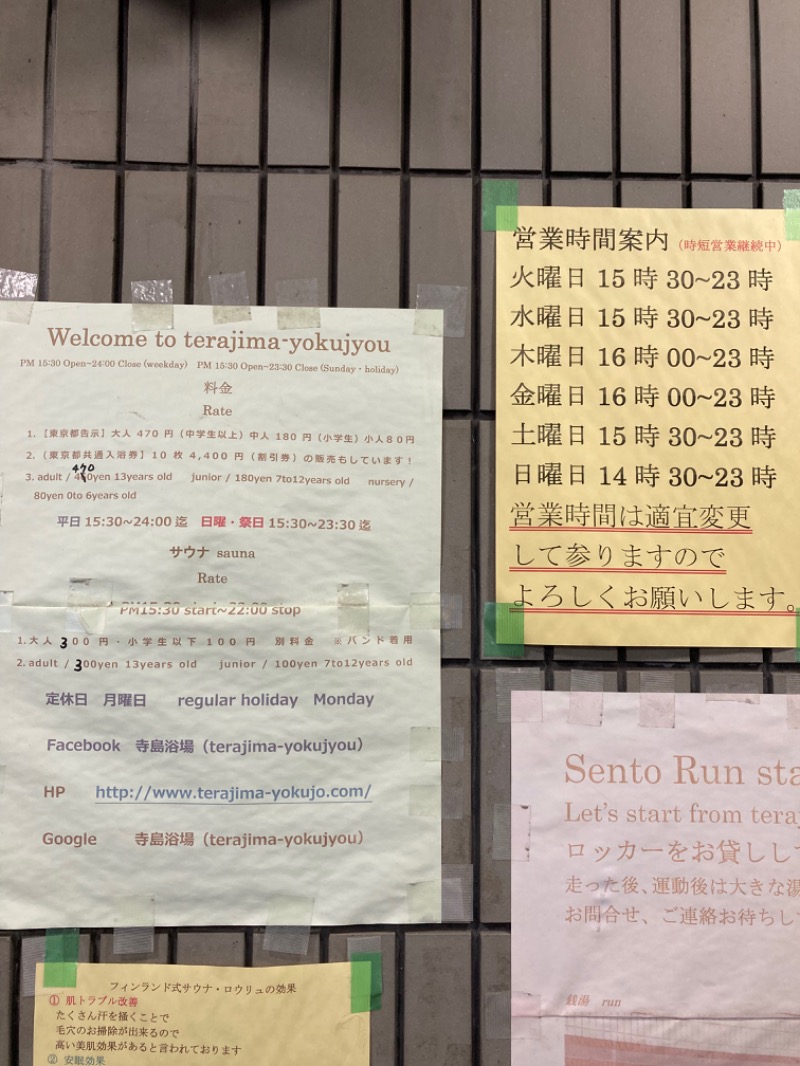 Welcome to terajima-yokujyou
PM 15:30 Open~24:00 Close (weekday) PM 15:30 Open~23:30 Close (Sunday・holiday)
料金
Rate
1. 【東京都告示】大人 470 円（中学生以上）中人 180 円（小学生）小人８０円
2. （東京都共通入浴券）１０ 枚 ４,４００ 円（割引券）の販売もしています！
3. adult / 470yen 13years old junior / 180yen 7to12years old nursery /
80yen 0to 6years old
平日 15:30~24:00 迄 日曜・祭日 15:30~23:30 迄
サウナ sauna
Rate
PM15:30 start~22:00 stop
1. 大人 ３００ 円・小学生以下 １００ 円 別料金 ※バンド着用
2. adult / 300yen 13years old junior / 100yen 7to12years old
定休日 月曜日 regular holiday Monday
Facebook 寺島浴場（terajima-yokujyou）
HP http://www.terajima-yokujo.com/
Google 寺島浴場（terajima-yokujyou）
営業時間案内（時短営業継続中）
火曜日 15 時 30~23 時
水曜日 15 時 30~23 時
木曜日 16 時 00~23 時
金曜日 16 時 00~23 時
土曜日 15 時 30~23 時
日曜日 14 時 30~23 時
営業時間は適宜変更
して参りますので
よろしくお願いします。
Sento Run sta
Let's start from teraj
ロッカーをお貸しして
走った後、運動後は大きな湯
お問合せ、ご連絡お待ちし
銭湯 run
フィンランド式サウナ・ロウリュの効果
① 肌トラブル改善
たくさん汗を掻くことで
毛穴のお掃除が出来るので
高い美肌効果があると言われております
② 安眠効果